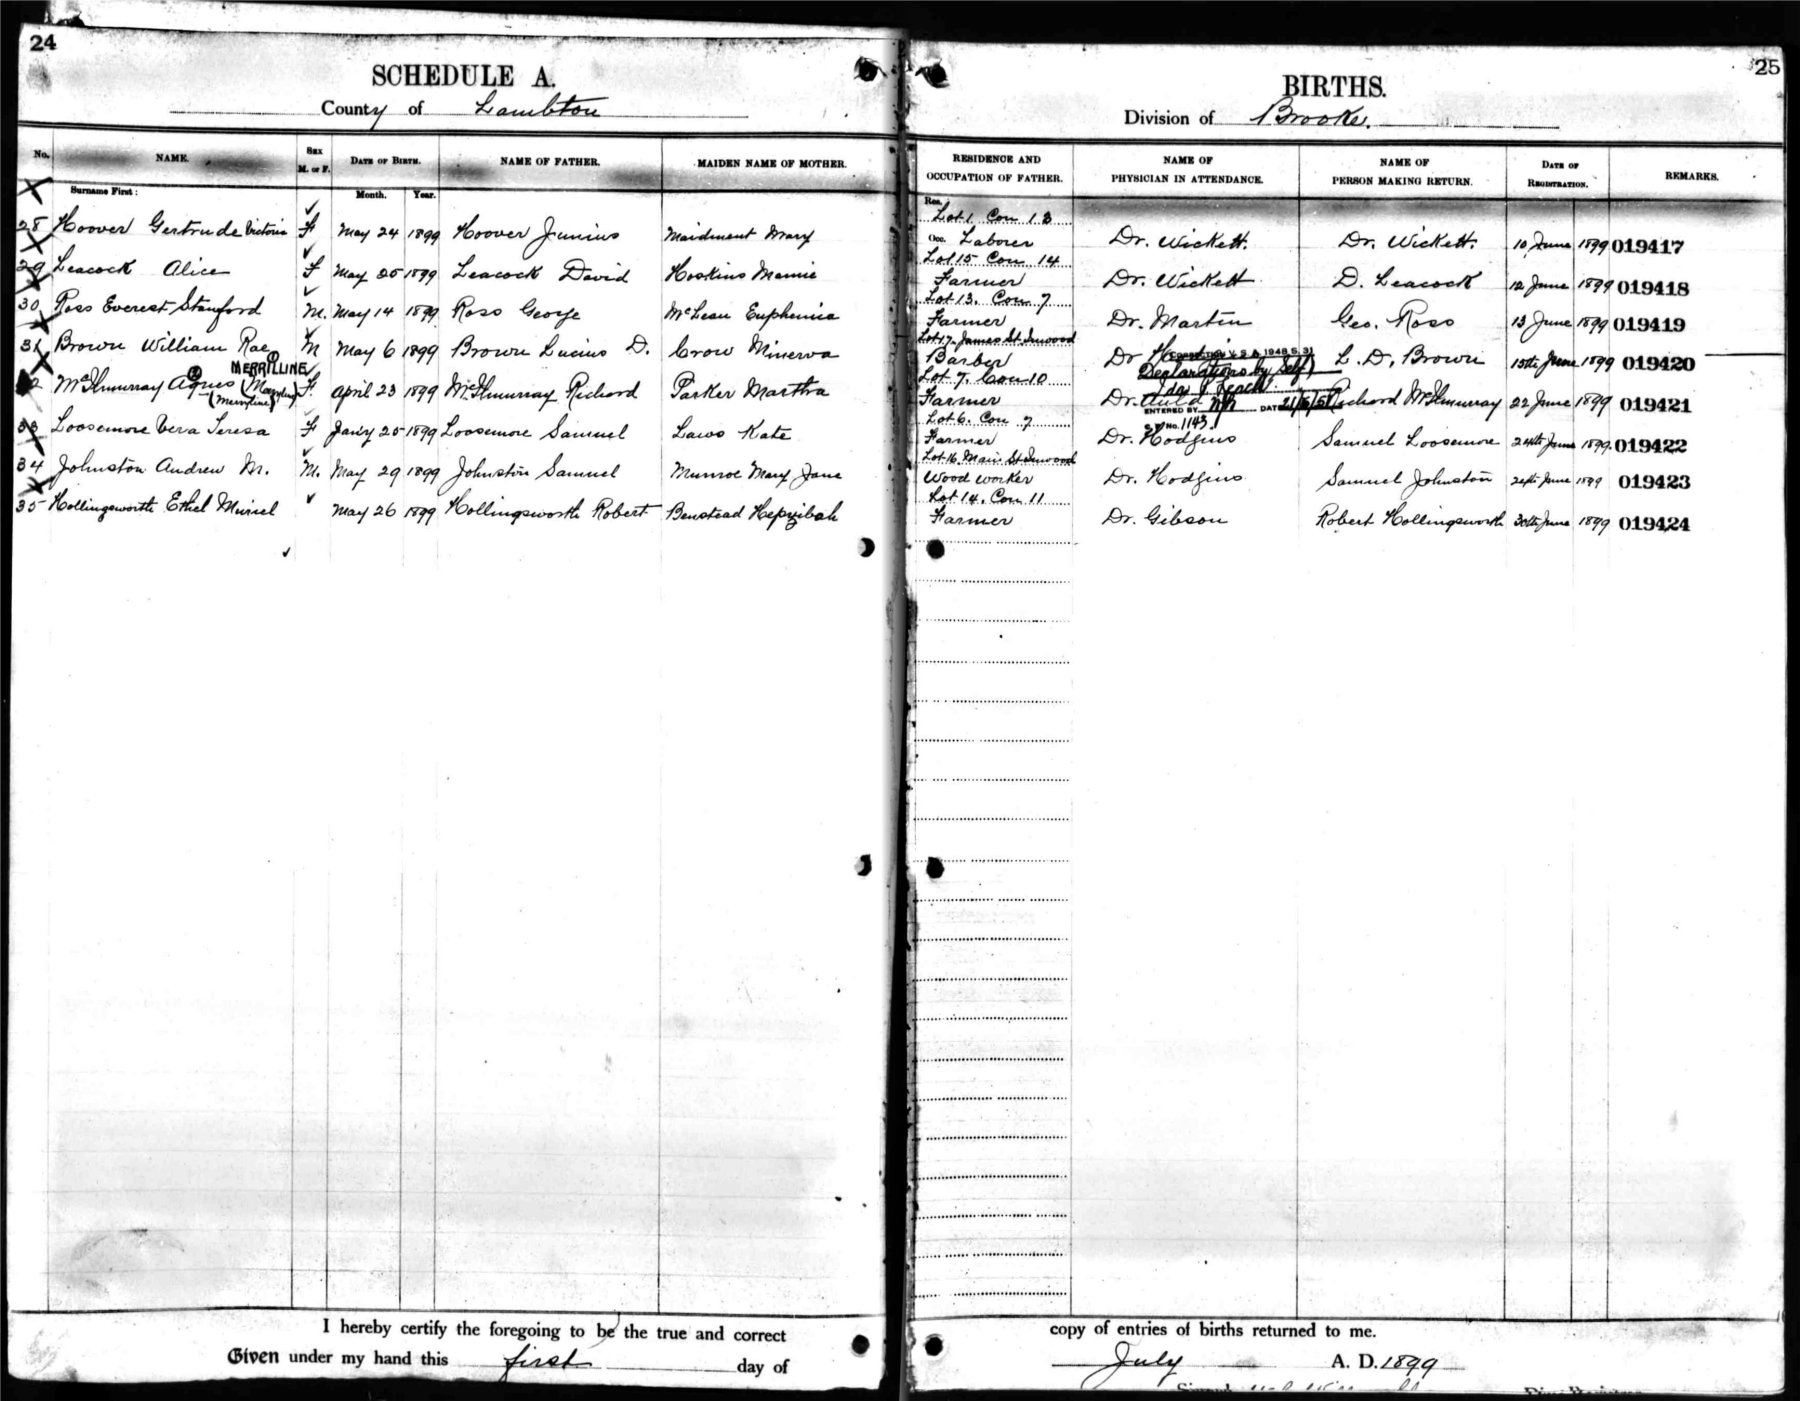 24
SCHEDULE A.
County of Lambton
No. NAME. Sex M. or F. Date of Birth. NAME OF FATHER. MAIDEN NAME OF MOTHER.
Surname First: Month. Year.
28 Hoover Gertrude Victoria F May 24 1899 Hoover Junius Maidment Mary
29 Leacock Alice F May 25 1899 Leacock David Hoskins Mamie
30 Ross Everest Stanford M. May 14 1899 Ross George McLean Euphemia
31 Brown William Rae M May 6 1899 Brown Lucius D. Crow Minerva
MERRILLINE
32 McIlmurray Agnes (Maryline) F. April 23 1899 McIlmurray Richard Parker Martha
(Merryline)
33 Loosemore Vera Teresa F Jan'y 25 1899 Loosemore Samuel Laws Kate
34 Johnston Andrew M. M. May 29 1899 Johnston Samuel Munroe Mary Jane
35 Hollingsworth Ethel Muriel May 26 1899 Hollingsworth Robert Benstead Hepzibah
I hereby certify the foregoing to be the true and correct
Given under my hand this first day of
25
BIRTHS.
Division of Brooke.
RESIDENCE AND OCCUPATION OF FATHER. NAME OF PHYSICIAN IN ATTENDANCE. NAME OF PERSON MAKING RETURN. Date of Registration. REMARKS.
Res. Lot 1 Con 13
Occ. Laborer Dr. Wickett. Dr. Wickett. 10 June 1899 019417
Lot 15 Con 14
Farmer Dr. Wickett D. Leacock 12 June 1899 019418
Lot 13. Con 7
Farmer Dr. Martin Geo. Ross 13 June 1899 019419
Lot 17. James St Inwood
Barber Dr L. D. Brown 15th June 1899 020420
V.S.A. 1948 S. 31
Declarations by Self
Lot 7. Con 10
Ida P. Leach
Farmer Dr. Auld Richard McIlmurray 22 June 1899 019421
ENTERED BY DATE 21/5/51
No. 1143
Lot 6. Con 7
Farmer Dr. Hodgins Samuel Loosemore 24th June 1899. 019422
Lot 16. Main St Inwood
Wood worker Dr. Hodgins Samuel Johnston 24th June 1899 019423
Lot 14. Con 11
Farmer Dr. Gibson Robert Hollingsworth 30th June 1899 019424
copy of entries of births returned to me.
July A. D. 1899